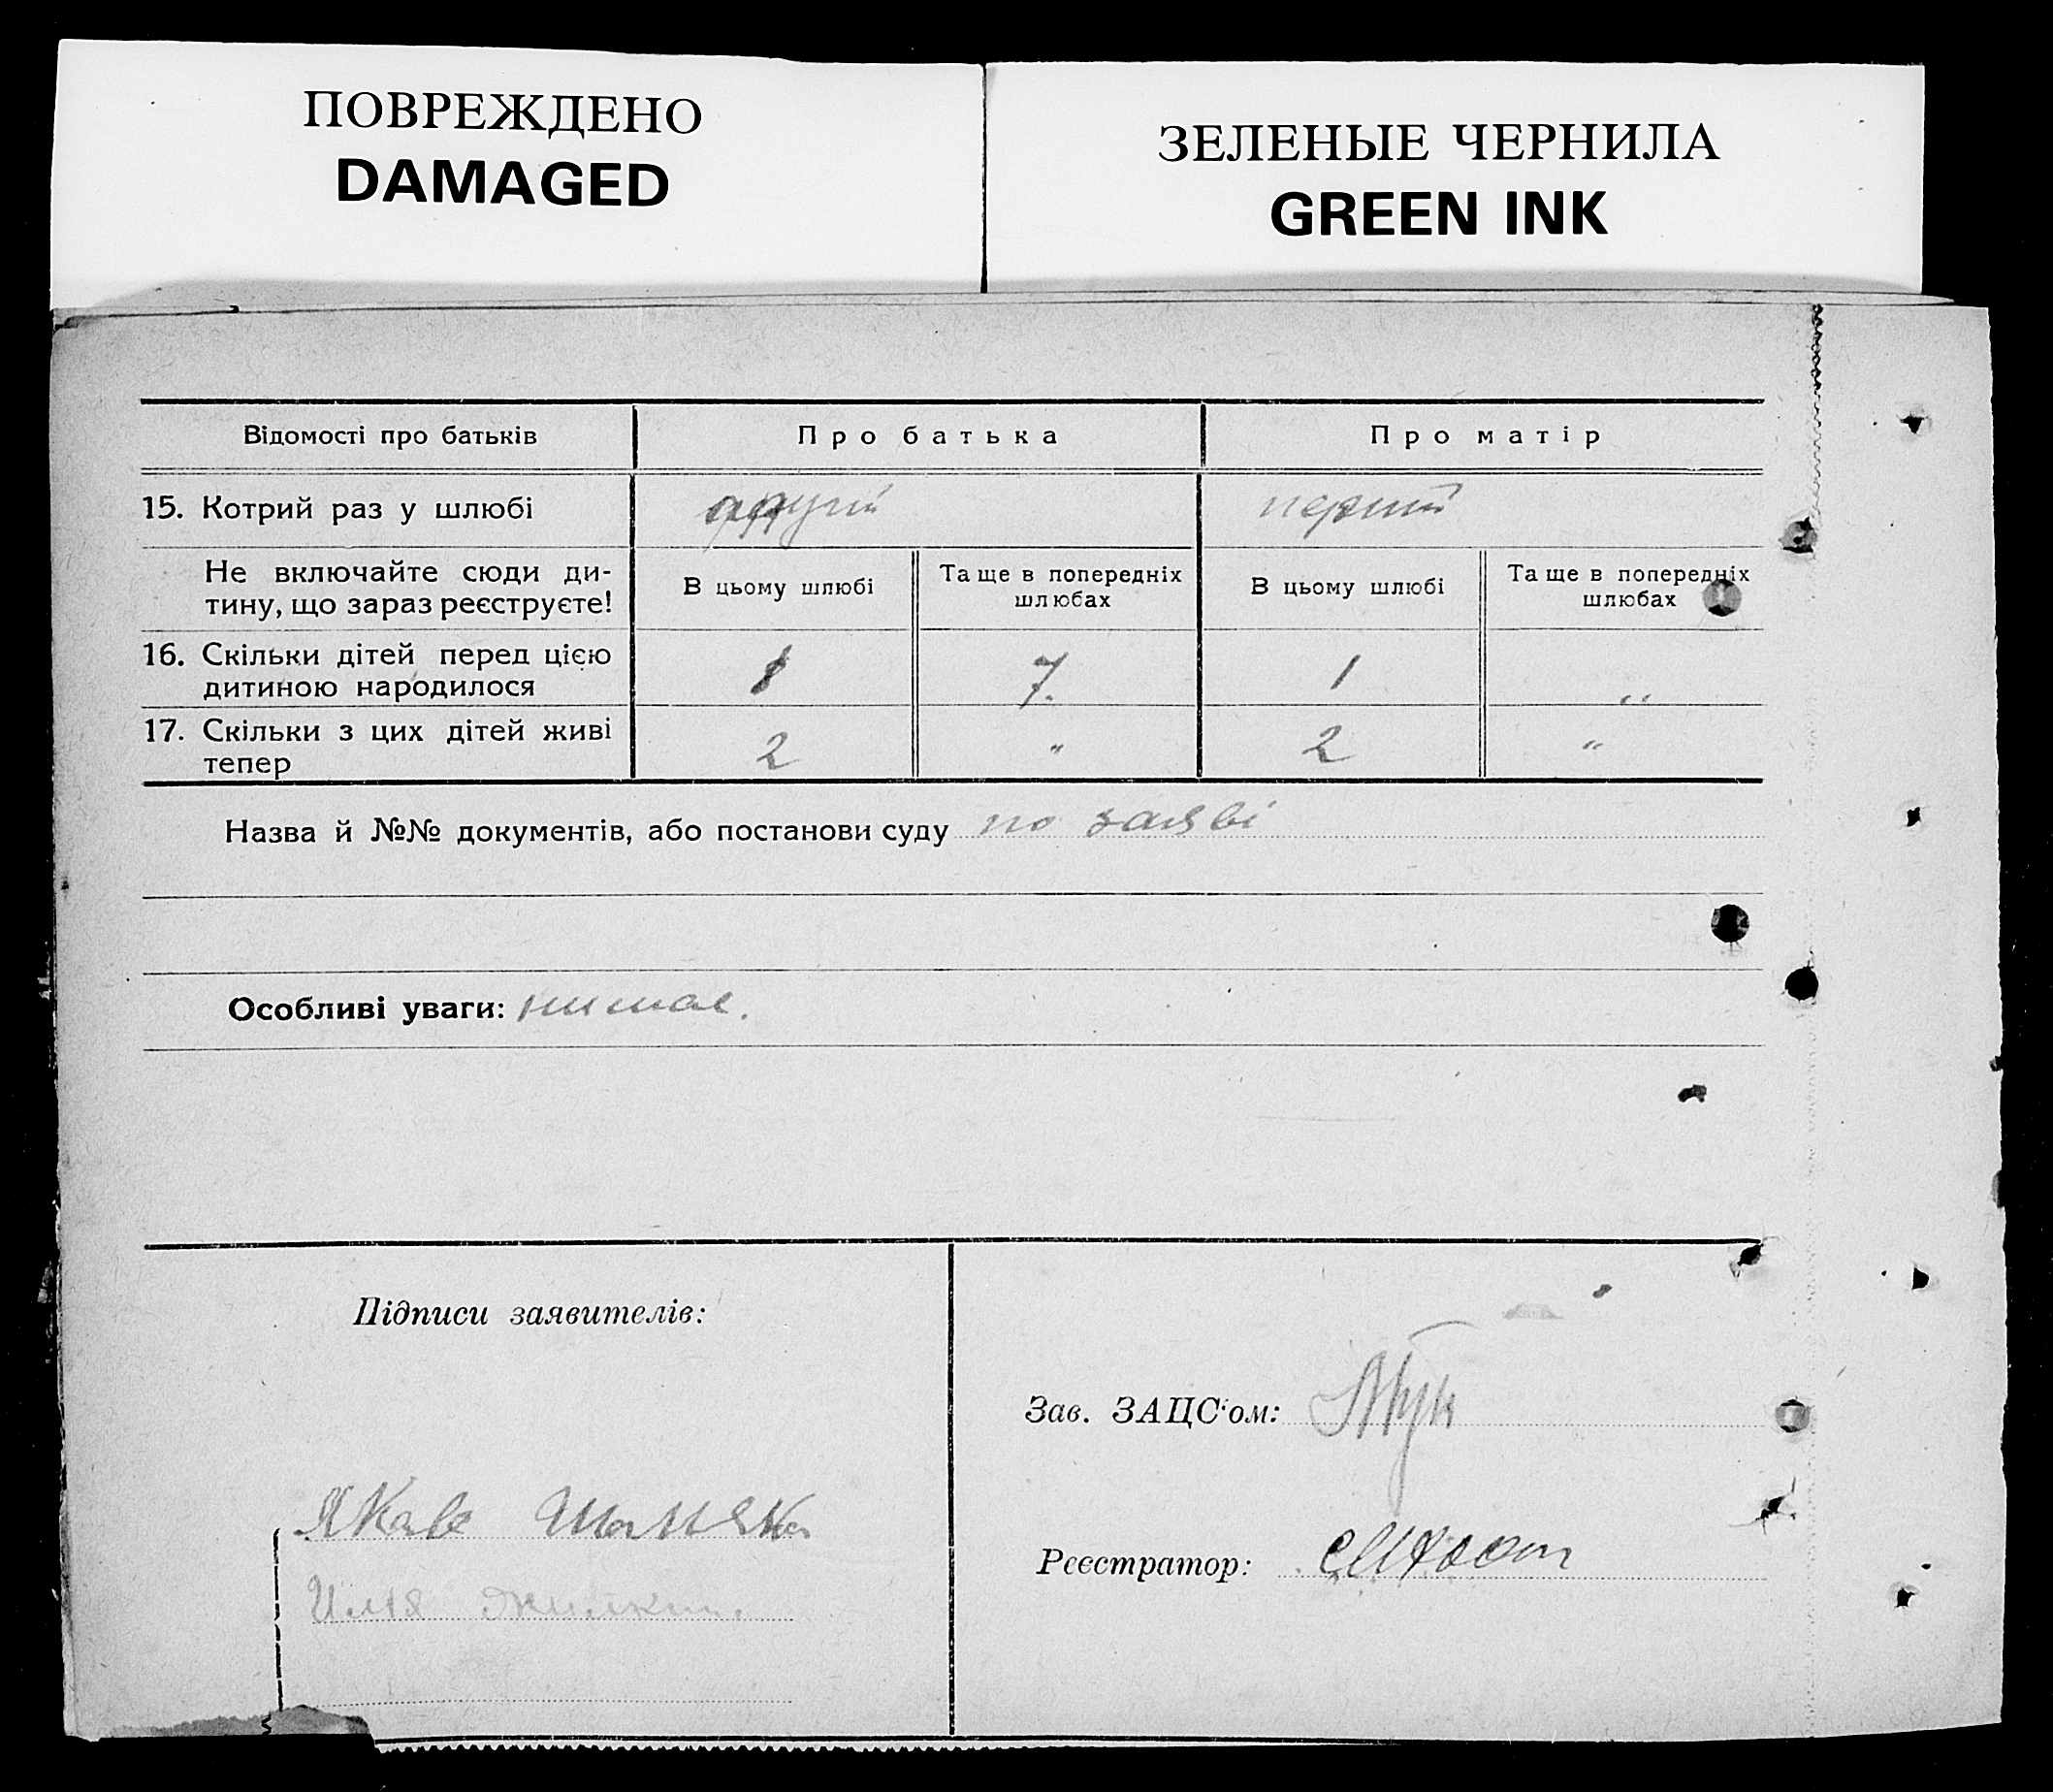 ПОВРЕЖДЕНО
DAMAGED
ЗЕЛЕНЫЕ ЧЕРНИЛА
GREEN INK
Відомості про батьків
Про батька
Про матір
15. Котрий раз у шлюбі
другій
перший
Не включайте сюди ди-
тину, що зараз реєструєте!
В цьому шлюбі
Та ще в попередніх
шлюбах
В цьому шлюбі
Та ще в попередніх
шлюбах
16. Скільки дітей перед цією
дитиною народилося
7.
1
"
17. Скільки з цих дітей живі
тепер
2
"
2
"
Назва й №№ документів, або постанови суду по заяві
Особливі уваги:
Підписи заявителів:
Зав. ЗАЦС'ом:
Реєстратор: